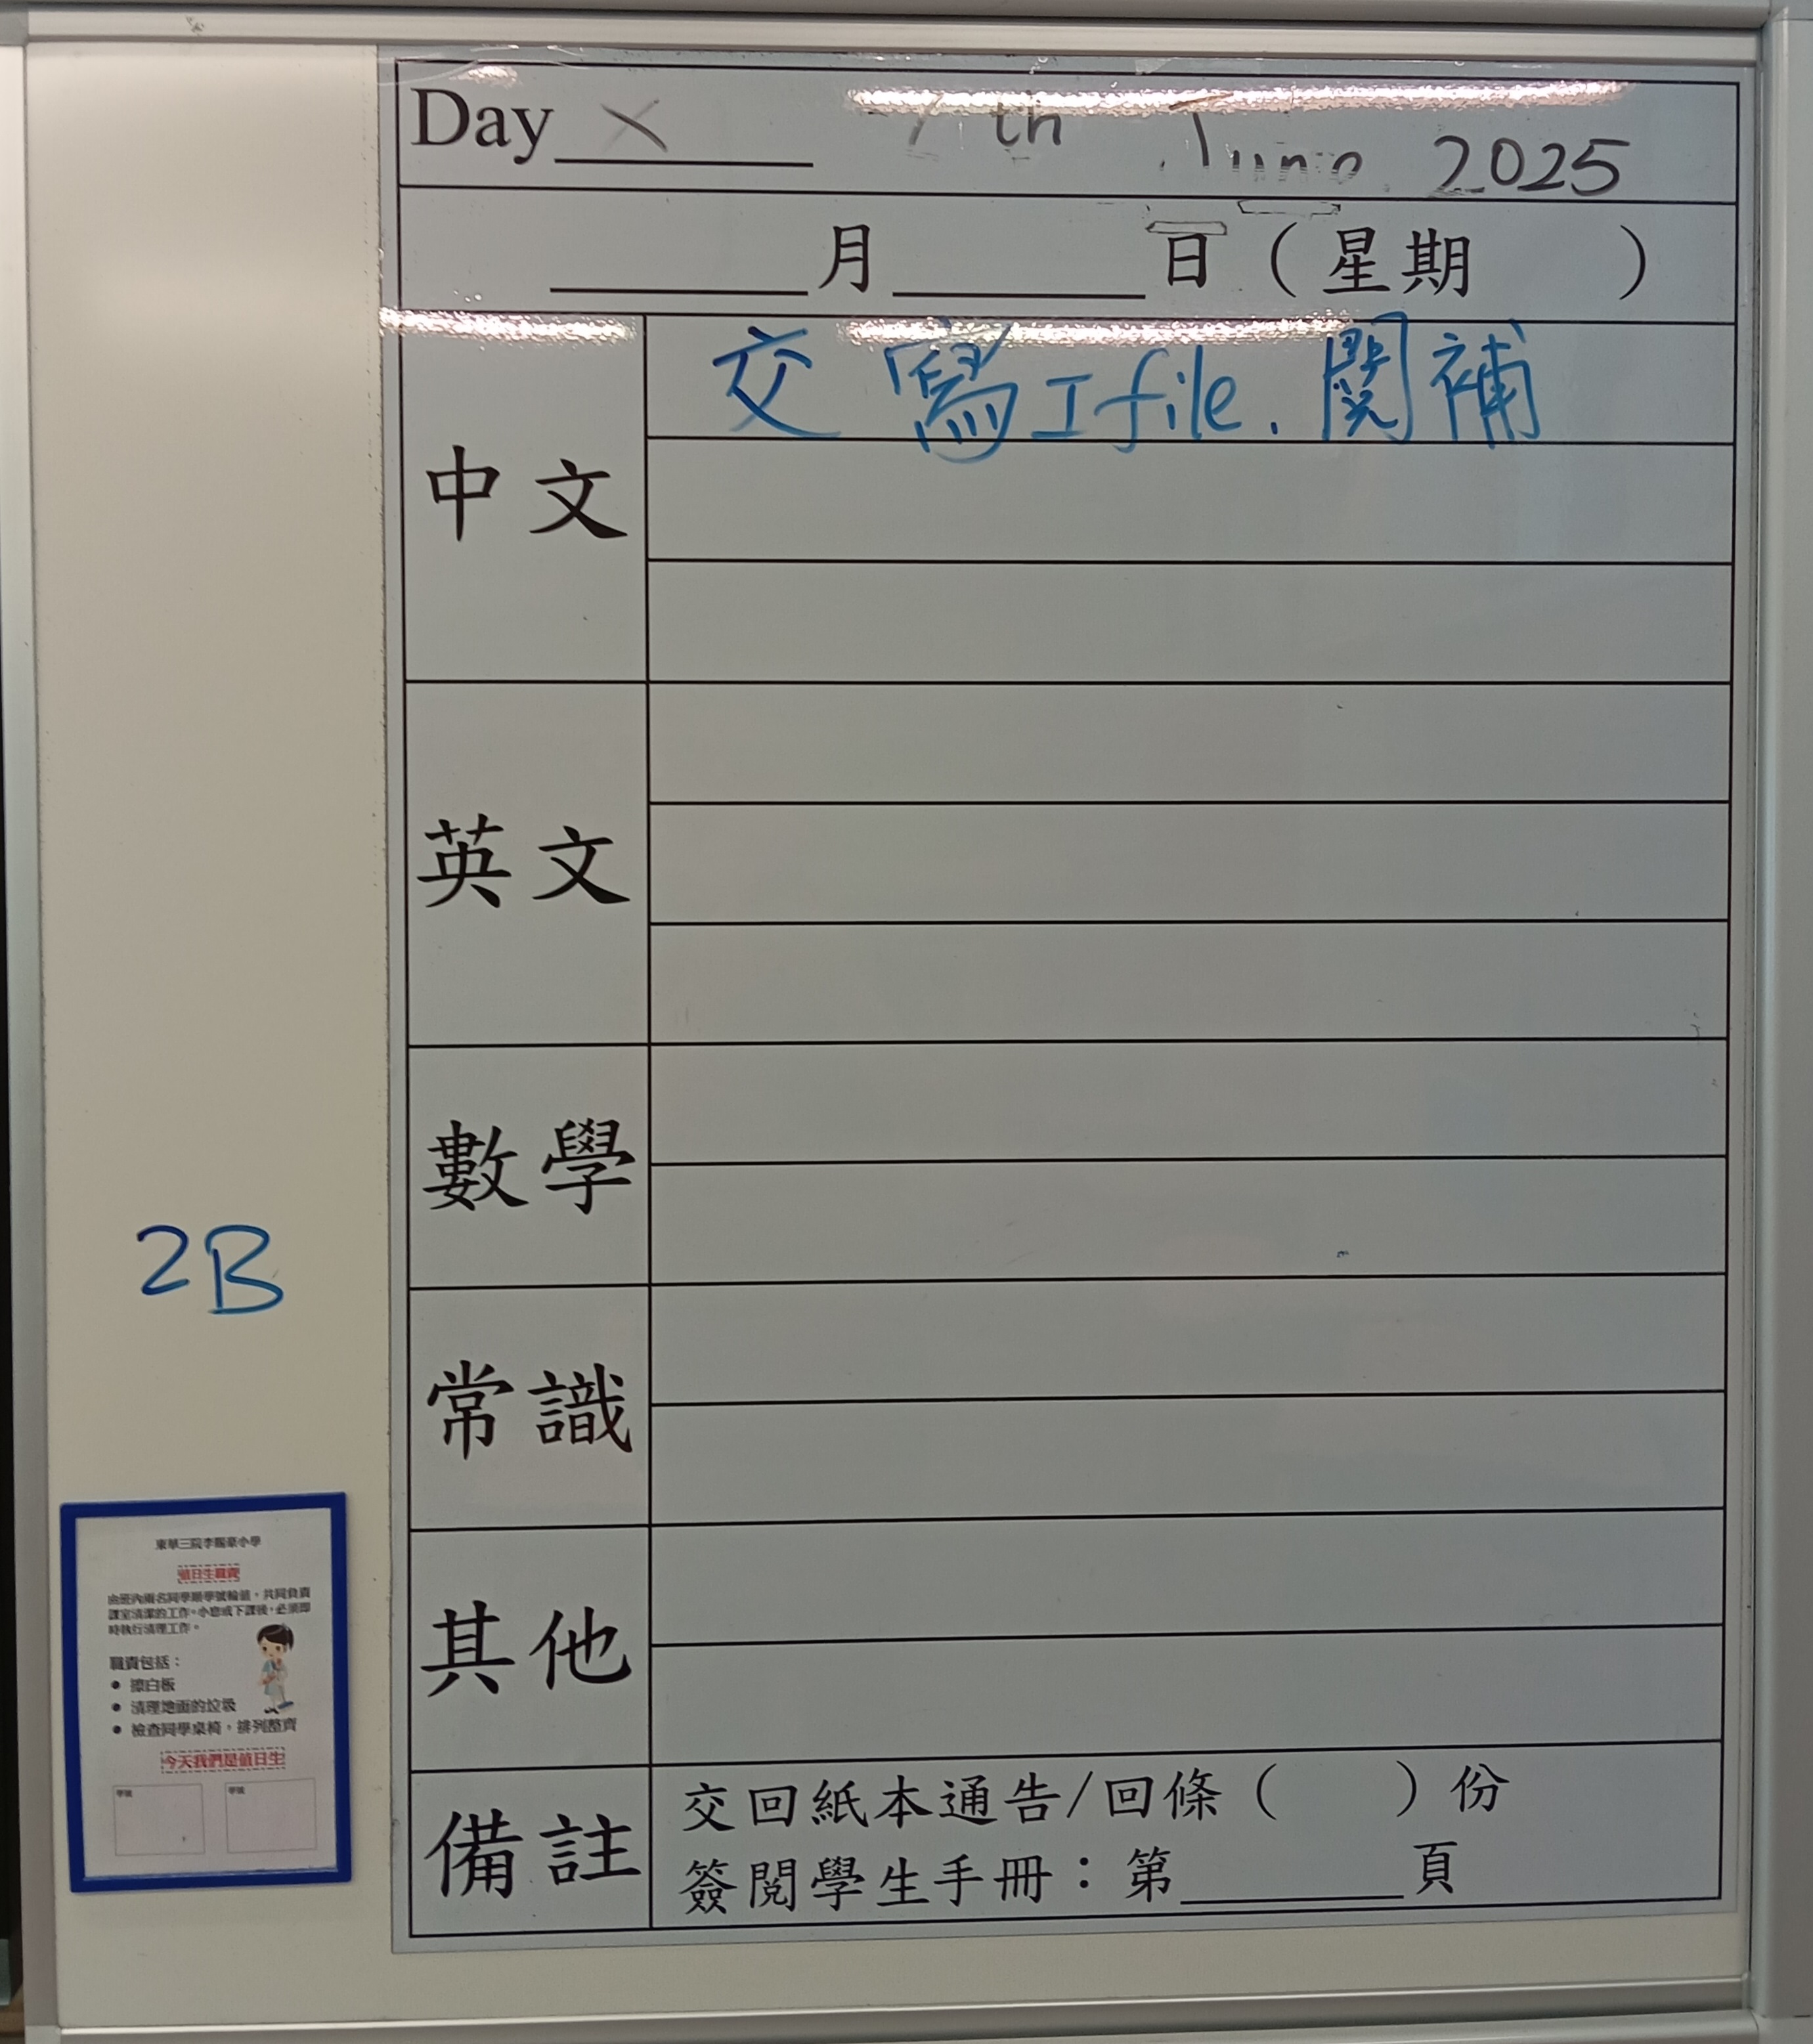 Day × 7th June. 2025
月 日（星期 ）
中文
交 寫工file. 閱補
英文
數學
常識
其他
備註
交回紙本通告/回條（ ）份
簽閱學生手冊：第 頁
2B
東華三院李賜豪小學
值日生職責
由班內兩名同學順學號輪值，共同負責
課室清潔的工作。小息或下課後，必須即
時執行清理工作。
職責包括：
● 擦白板
● 清理地面的垃圾
● 檢查同學桌椅，排列整齊
今天我們是值日生
學號 學號